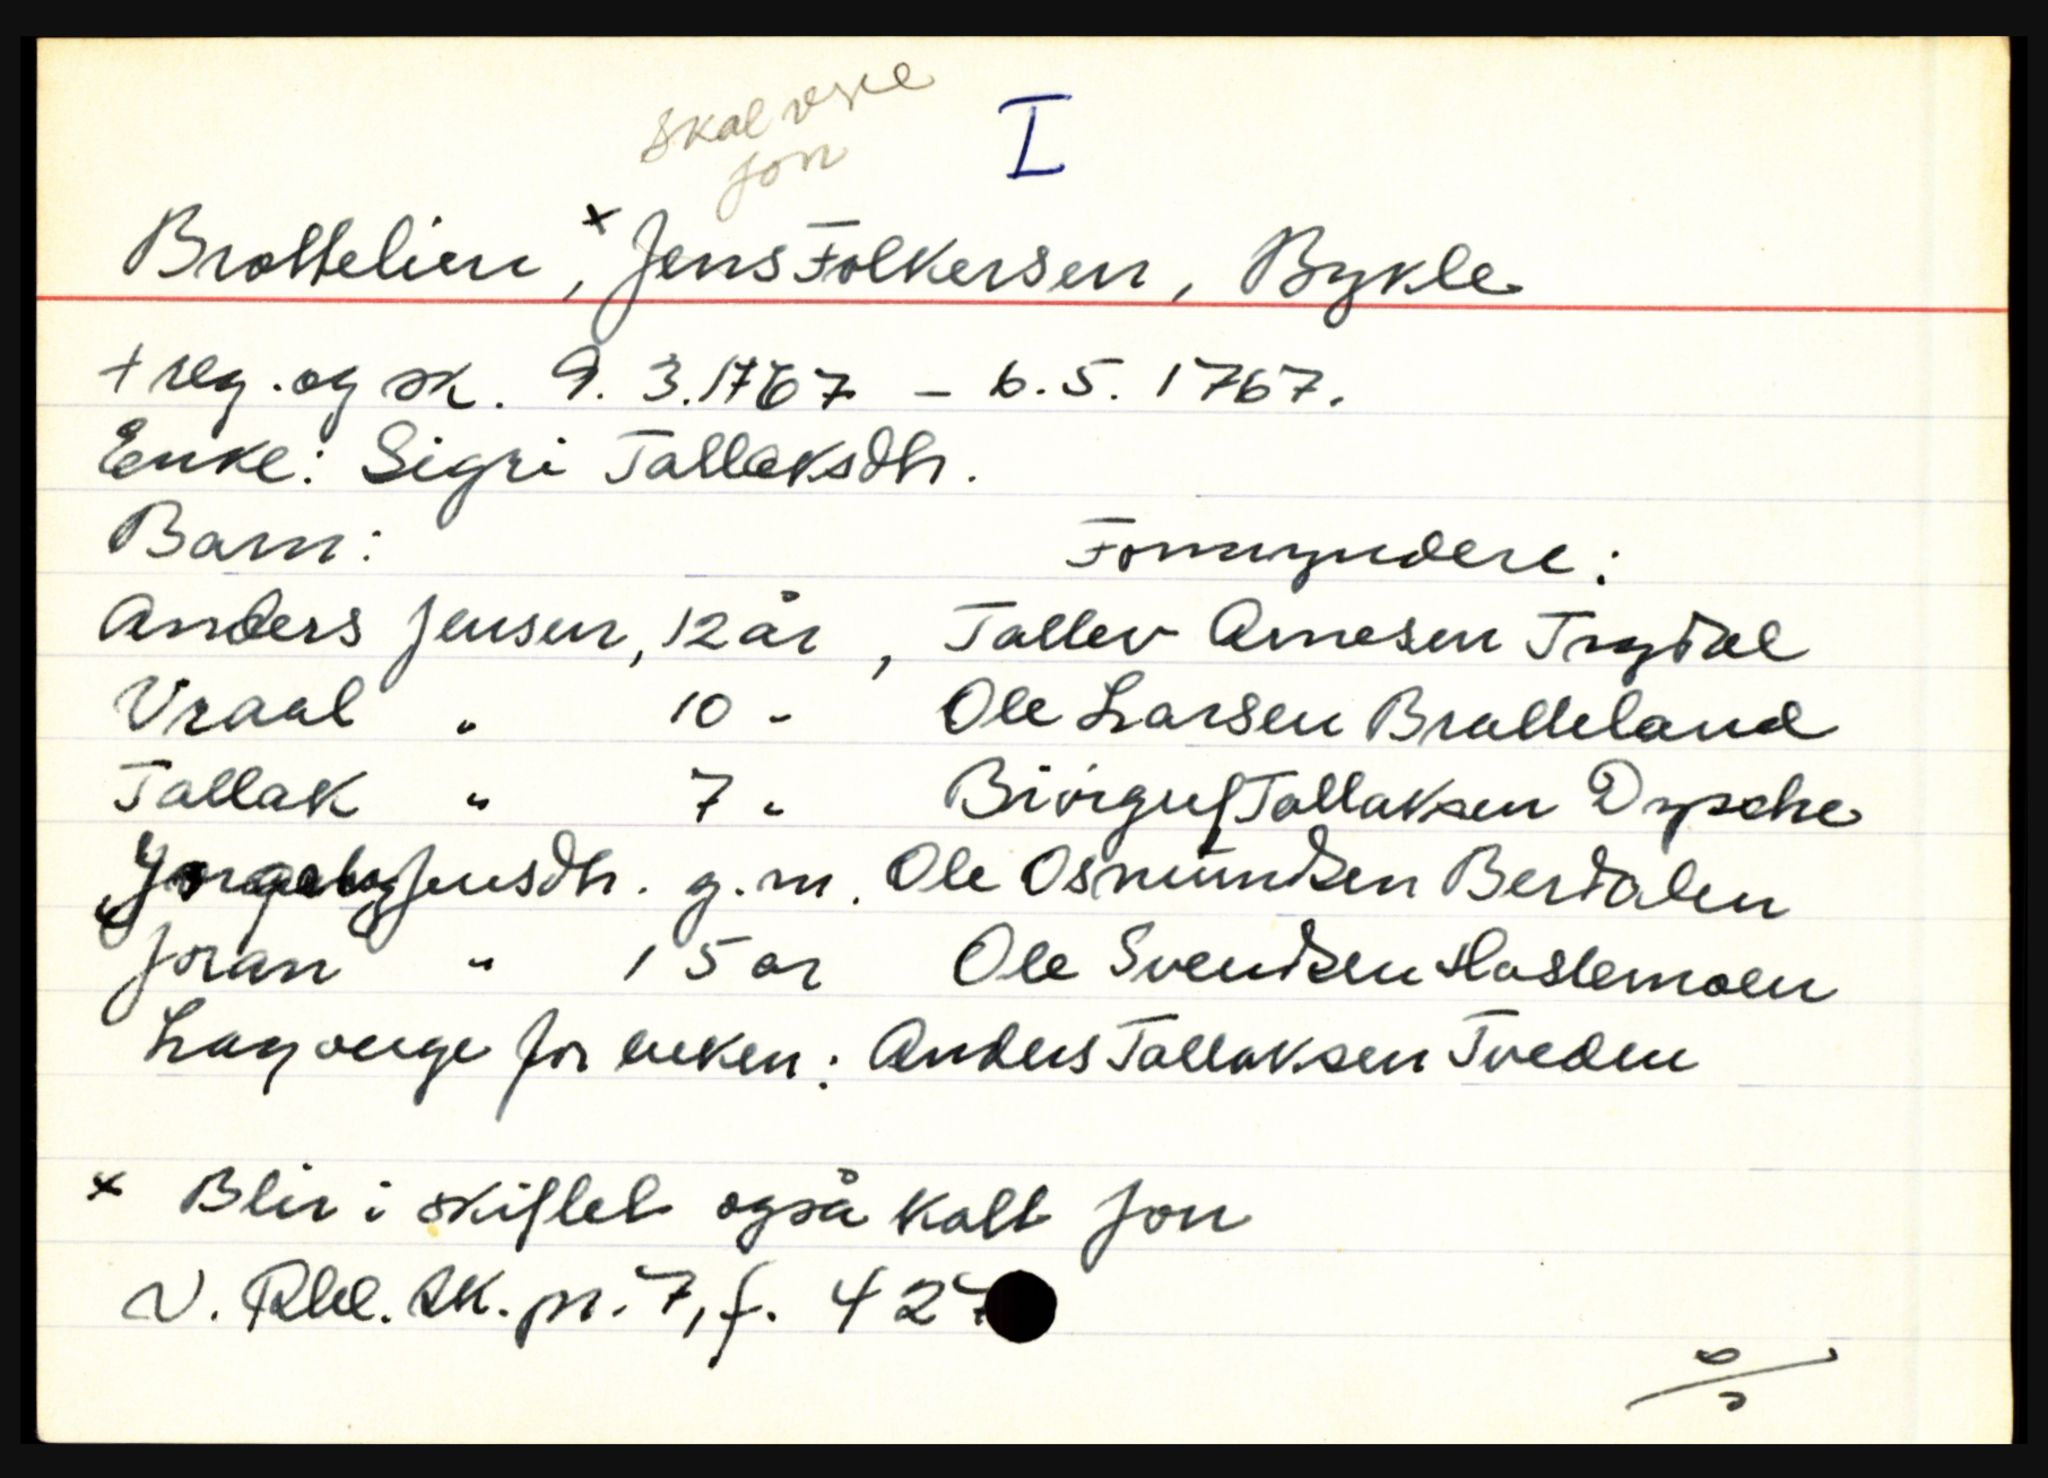 skal vere
Jon
I
Brottelien, ˣ Jens Folkersen, Bykle
+ reg. og sk. 9. 3. 1767 - 6. 5. 1767.
Enke: Sigri Tallaksdtr.
Barn: Formyndere:
Anders Jensen, 12 år, Tallev Arnesen Trydal
Vraal " 10 - Ole Larsen Bratteland
Tallak " 7 " Tallaksen
Jensdtr. g.m. Ole Osmundsen Berdalen
Joran " 15 år Ole Svendsen Hoslemoen
Lagverge for enken: Anders Tallaksen Tveden
× Blir i skiftet også kalt Jon
V. Rbl. sk. pr. 7, f. 427